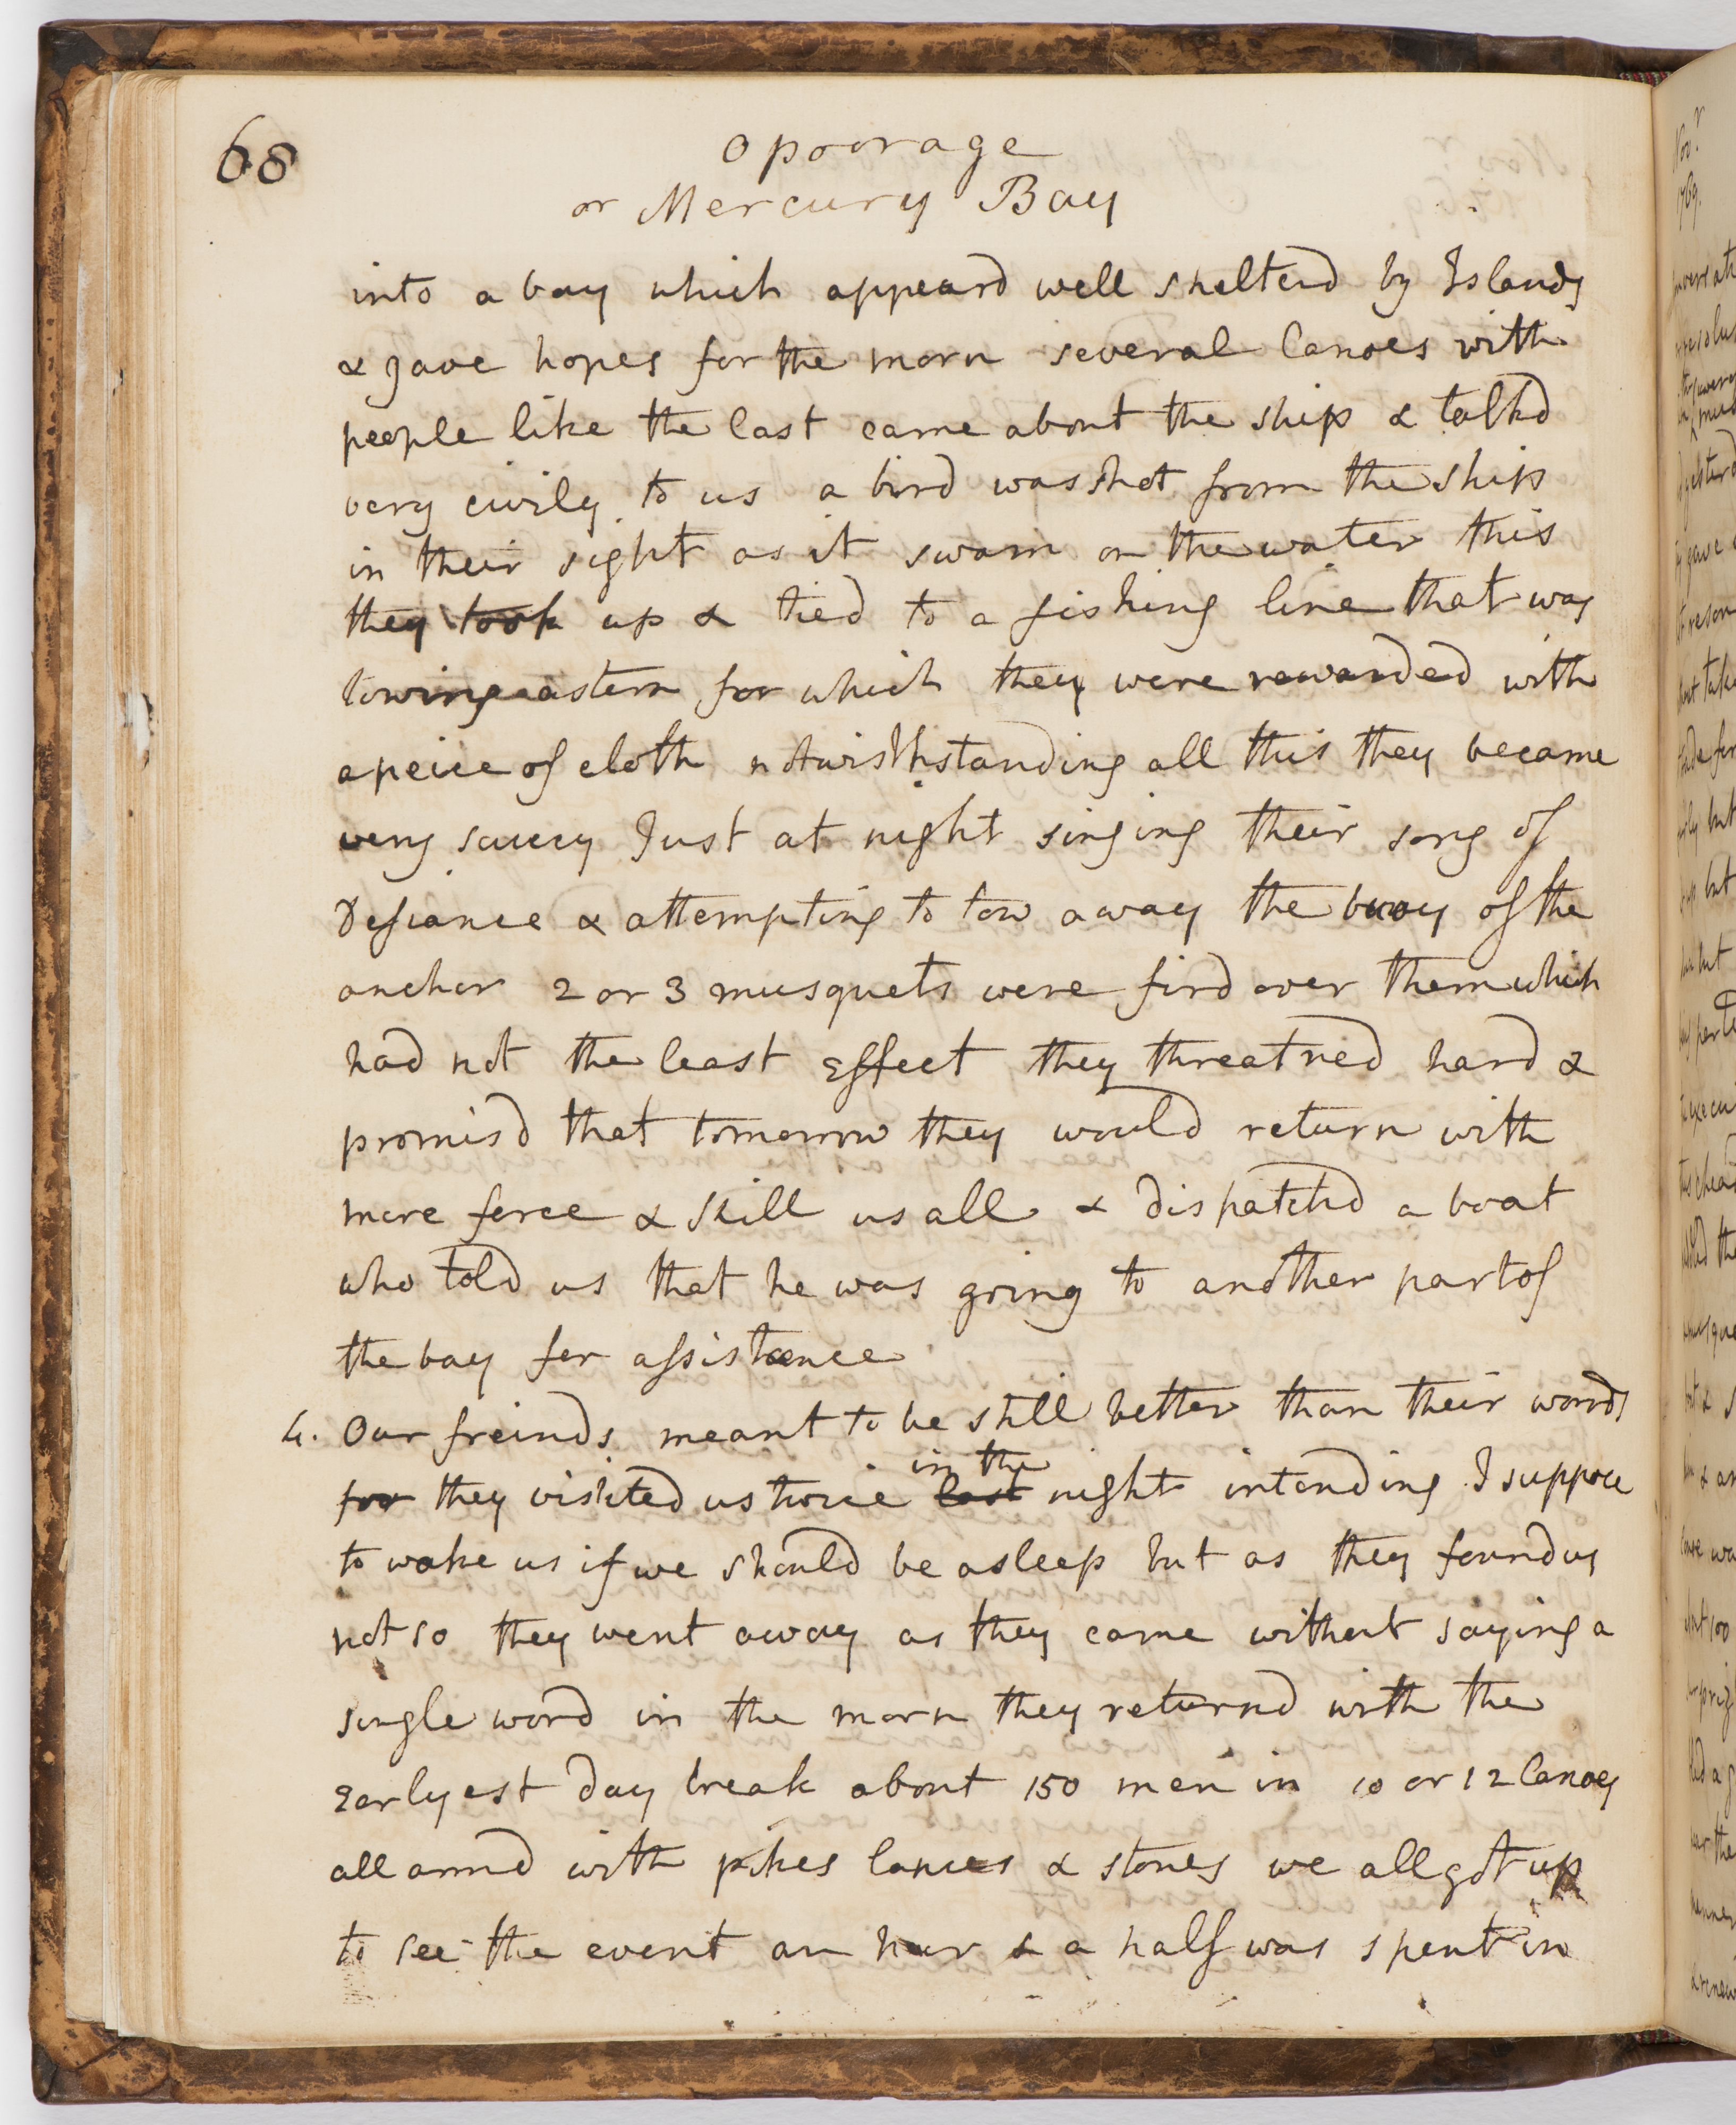 68
Opoorage
or Mercury Bay
into a bay which appeard well shelterd by Islands
& gave hopes for the morn several Canoes with
people like the last came about the ship & talkd
very civily to us a bird was shot from the ship
in their sight as it swam on the water this
they took up & tied to a fishing line that was
towing astern for which they were rewarded with
a peice of cloth notwisthstanding all this they became
very saucy Just at night singing their song of
Defiance & attempting to tow away the buoy of the
anchor 2 or 3 musquets were fird over them which
had not the least Effect they threatned hard &
promisd that tomorrow they would return with
more force & Skill us all & dispatchd a boat
who told us that he was going to another part of
the bay for assistance
4. Our freinds meant to be still better than their words
for they visited us twice last night intending I suppose
in the
to wake us if we should be asleep but as they found us
not so they went away as they came without saying a
single word in the morn they returnd with the
Earlyest day break about 150 men in 10 or 12 Canoes
all armd with pikes lances & stones we all got up
to see the event an hour & a half was spent in
Nov.r
1769.